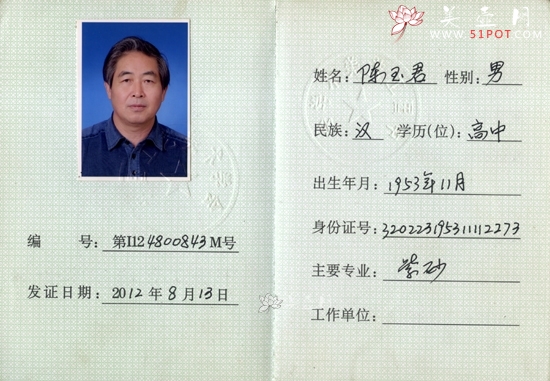 美壶网
www.51POT.COM
编 号: 第I124800843M号
发证日期: 2012年8月13日
姓名: 陈玉君 性别: 男
民族: 汉 学历(位): 高中
出生年月: 1953年11月
身份证号: 320223195311112273
主要专业: 紫砂
工作单位: